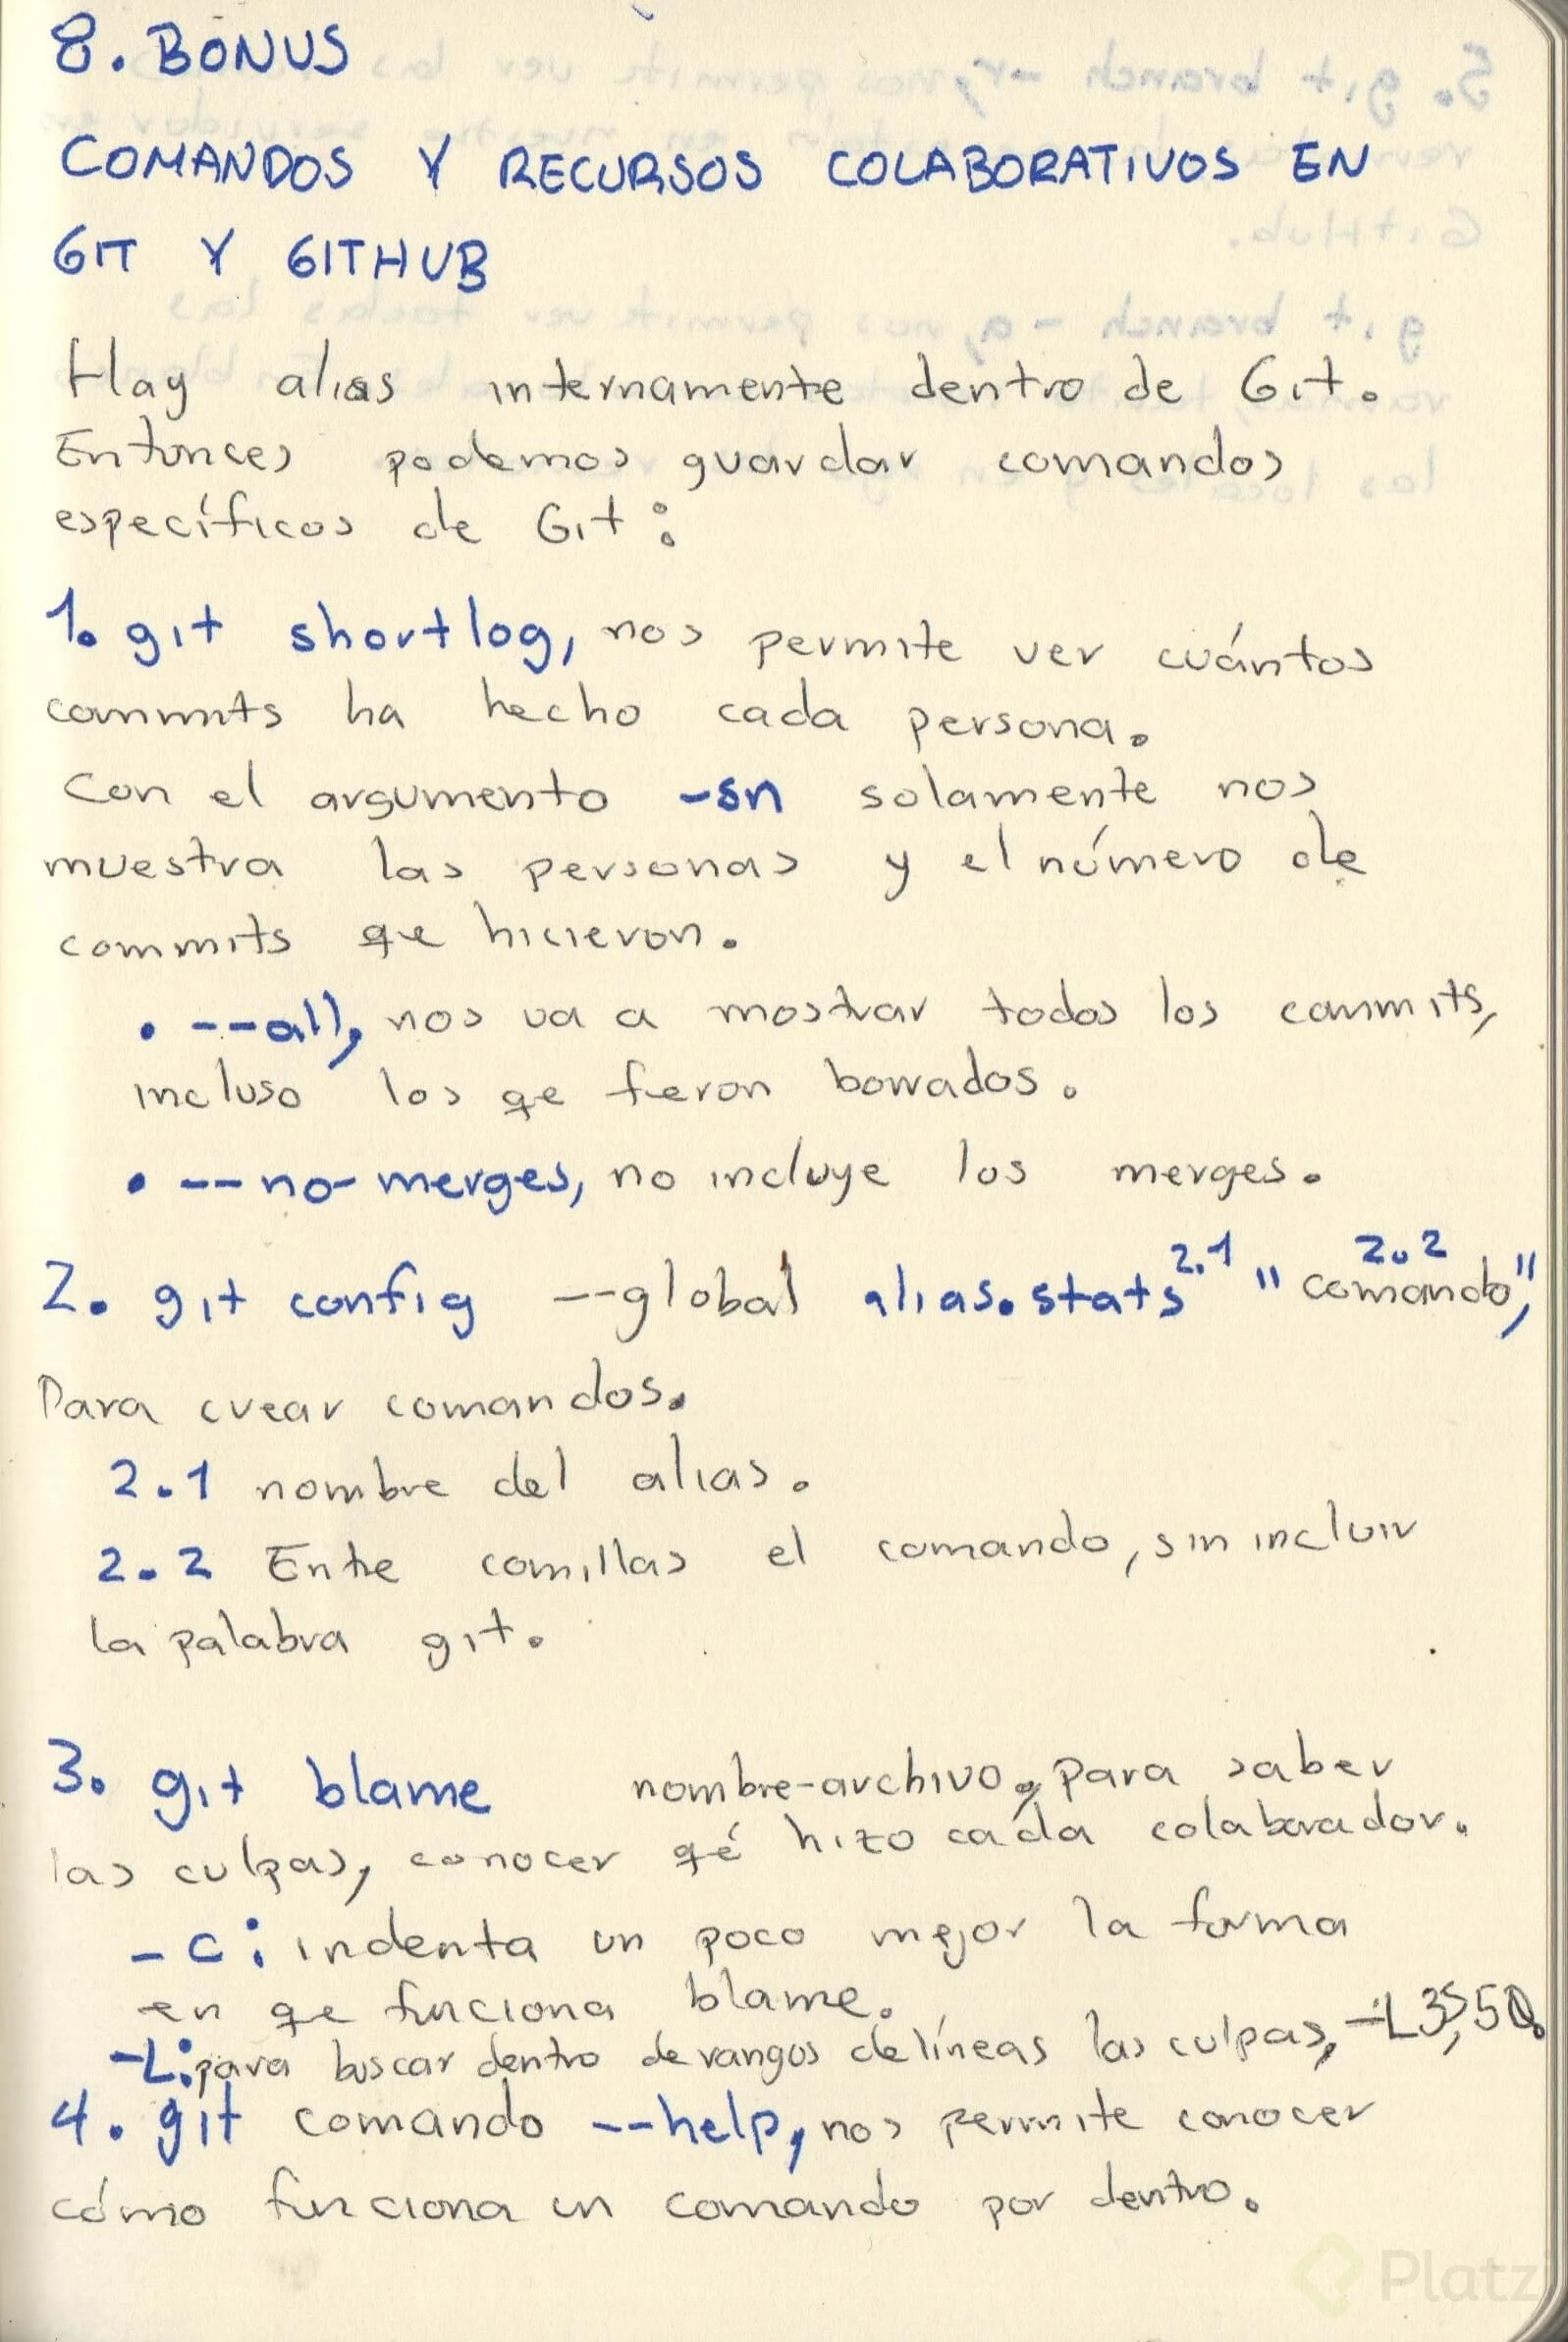 8. BONUS
COMANDOS Y RECURSOS COLABORATIVOS EN
GIT Y GITHUB
Hay alias internamente dentro de Git.
Entonces podemos guardar comandos
específicos de Git:
1. git shortlog, nos permite ver cuántos
commits ha hecho cada persona.
Con el argumento -sn solamente nos
muestra las personas y el número de
commits qe hicieron.
• --all, nos va a mostrar todos los commits,
incluso los qe fueron borrados.
• --no-merges, no incluye los merges.
2. git config --global alias.stats 2.1 "comando", 2.2
Para crear comandos.
2.1 nombre del alias.
2.2 Entre comillas el comando, sin incluir
la palabra git.
3. git blame nombre-archivo, para saber
las culpas, conocer qé hizo cada colaborador.
-c: indenta un poco mejor la forma
en qe funciona blame.
-L: para buscar dentro de rangos de líneas las culpas, -L35,50.
4. git comando --help, nos permite conocer
cómo funciona un comando por dentro.
5. git branch -r, nos permite ver las
GitHub.
git branch -a, nos permite ver todas las
Platzi